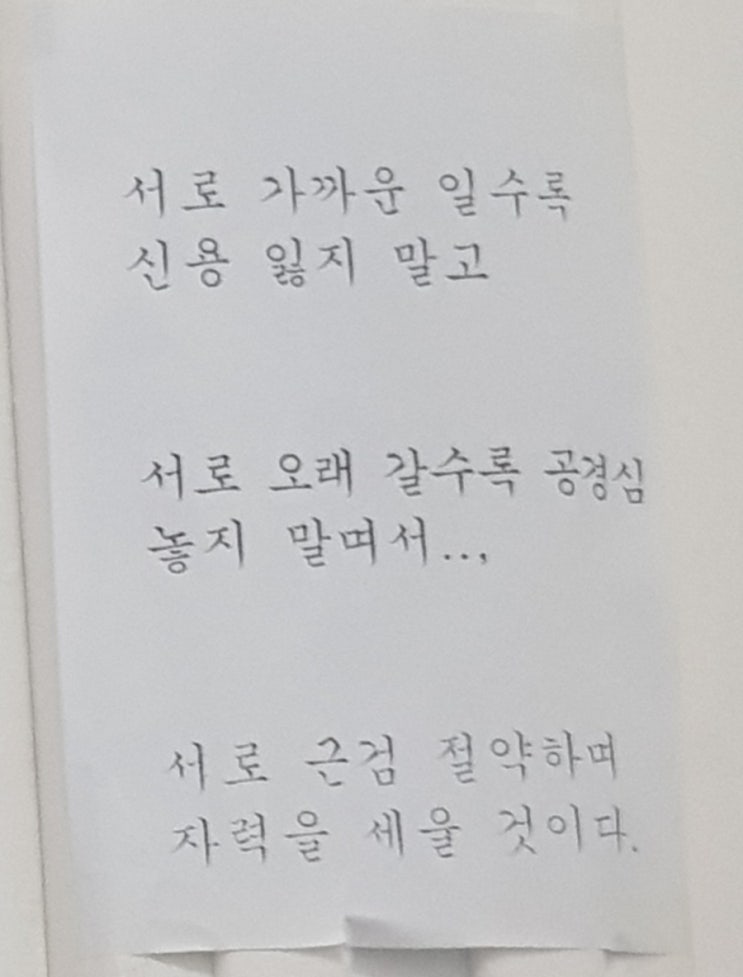 서로 가까운 일수록
신용 잃지 말고
서로 오래 갈수록 공경심
놓지 말며서...,
서로 근검 절약하며
자력을 세울 것이다.